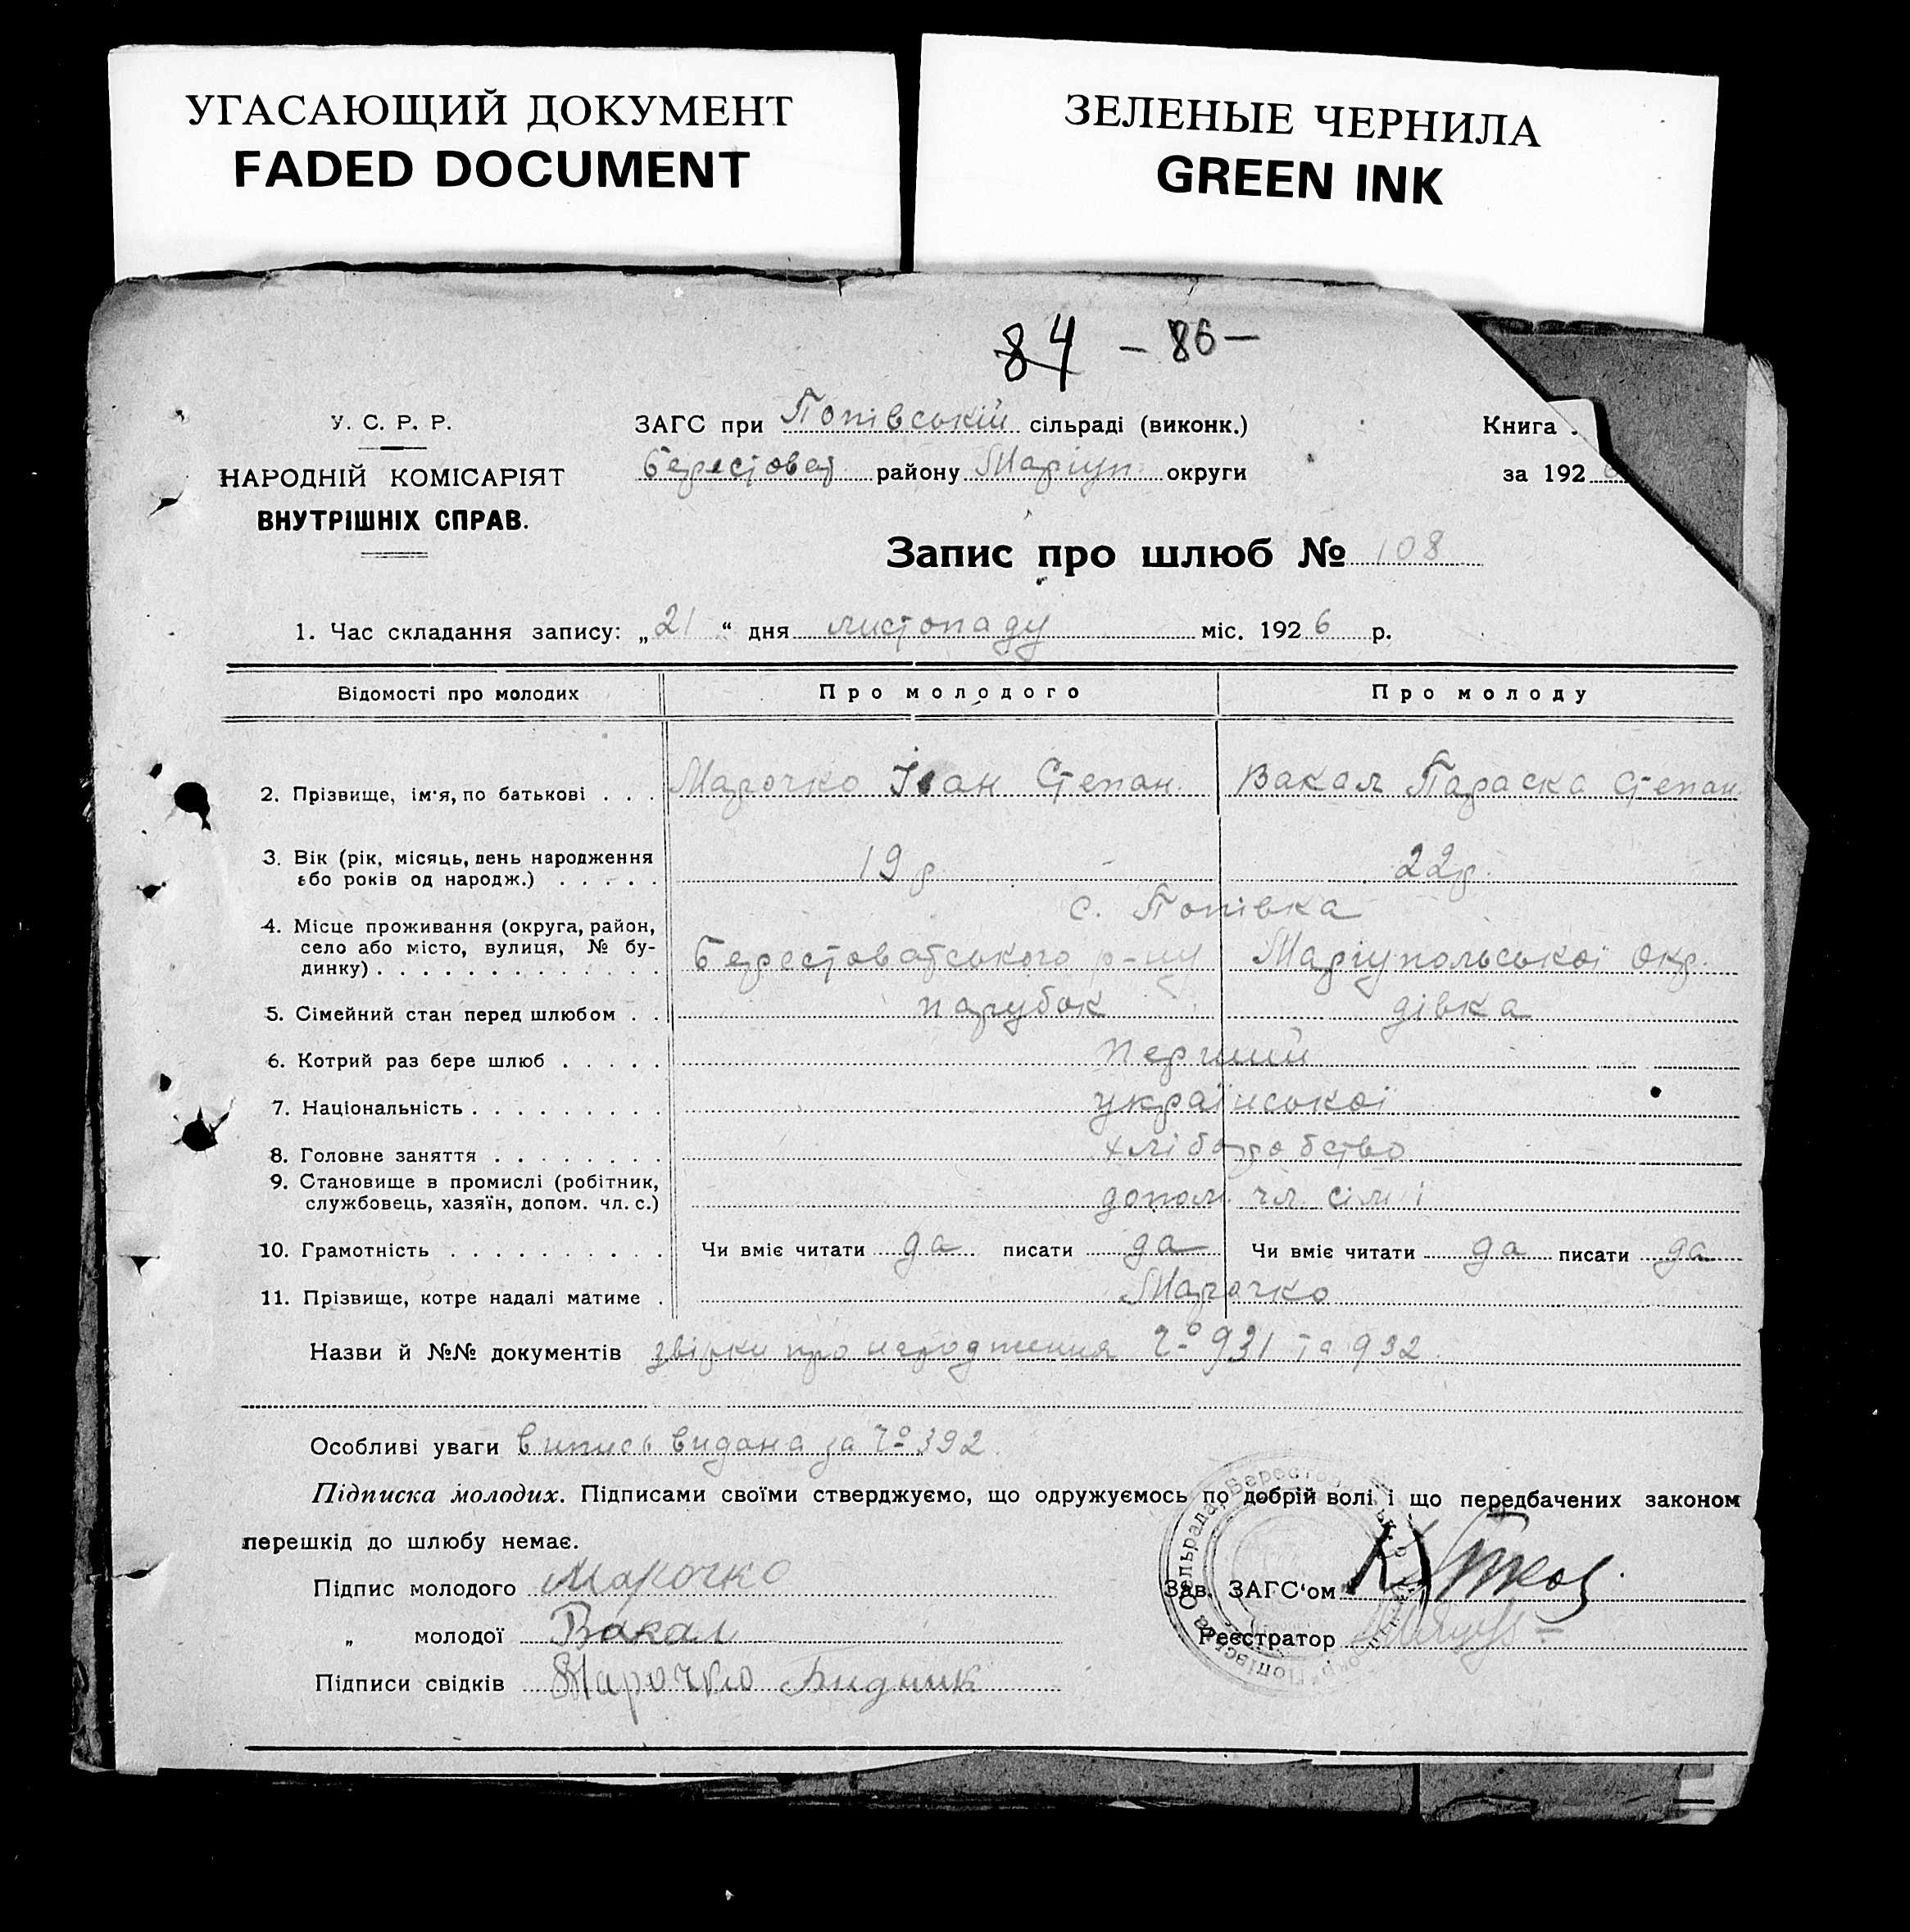 УГАСАЮЩИЙ ДОКУМЕНТ
FADED DOCUMENT
ЗЕЛЕНЫЕ ЧЕРНИЛА
GREEN INK
84 – 86 –
У. С. Р. Р.
НАРОДНІЙ КОМІСАРІЯТ
ВНУТРІШНІХ СПРАВ.
ЗАГС при Попівській сільраді (виконк.)
Берестоват району Маріуп. округи
Книга
за 192
Запис про шлюб № 108
1. Час складання запису: „21“ дня листопаду міс. 1926 р.
Відомості про молодих Про молодого Про молоду
2. Прізвище, ім'я, по батькові . . . Марочко Іван Степан. Вакал Параска Степан.
3. Вік (рік, місяць, день народження
або років од народж.) . . . . . 19 р. 22 р.
с. Попівка
4. Місце проживання (округа, район,
село або місто, вулиця, № бу-
динку) . . . . . . . . . . . . Берестоватського р-ну Маріупольської Окр.
5. Сімейний стан перед шлюбом . . парубок дівка
6. Котрий раз бере шлюб . . . . . перший
7. Національність . . . . . . . . . української
8. Головне заняття . . . . . . . . хліборобство
9. Становище в промислі (робітник,
службовець, хазяїн, допом. чл. с.) допом. чл. сім'ї
10. Грамотність . . . . . . . . . . Чи вміє читати да писати да Чи вміє читати да писати да
11. Прізвище, котре надалі матиме . Марочко
Назви й №№ документів звірки про народження Ч° 931 та 932.
Особливі уваги випись видана за Ч° 392.
Підписка молодих. Підписами своїми стверджуємо, що одружуємось по добрій волі і що передбачених законом
перешкід до шлюбу немає.
Підпис молодого Марочко
Зав. ЗАГС'ом
„ молодої Вакал
Реєстратор
Підписи свідків Марочко Бидник